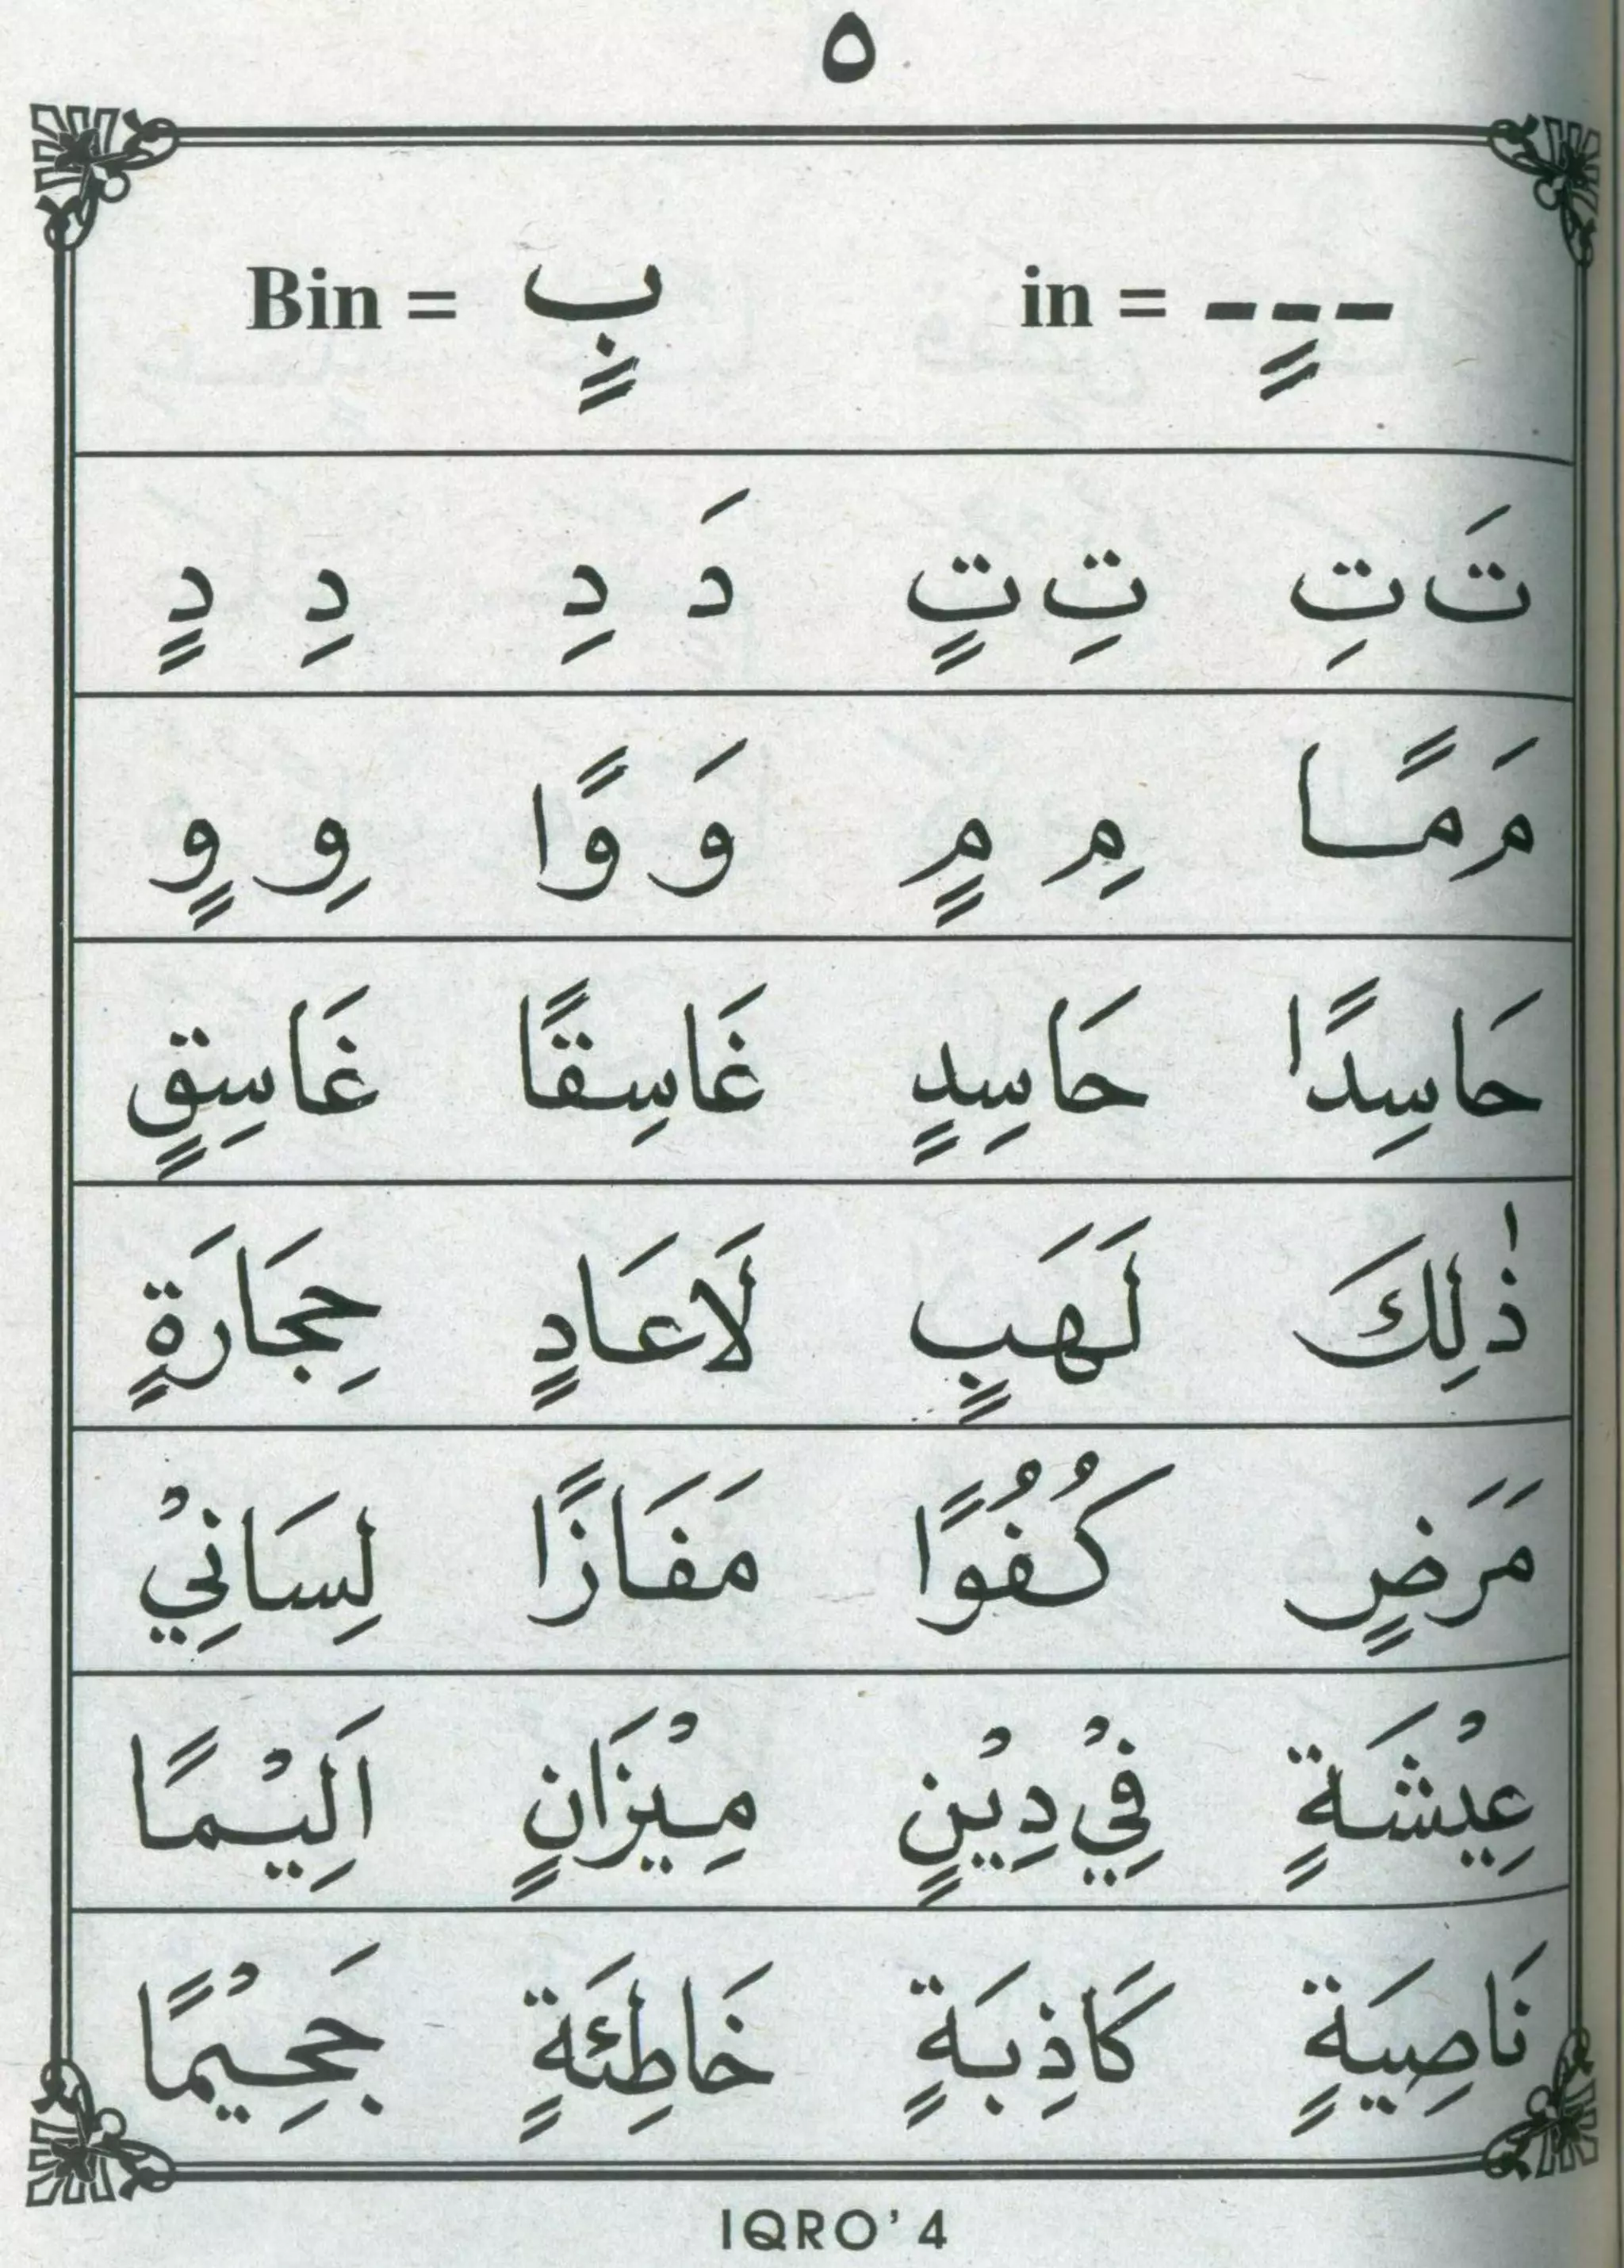 ٥
in = ---ٍ Bin = بٍ
تَ تِ تِ تٍ دَ دِ دِ دٍ
مَ مًا مِ مٍ وَ وًا وِ وٍ
حَاسِدًا حَاسِدٍ غَاسِقًا غَاسِقٍ
ذٰلِكَ لَهَبٍ لَاعَادٍ حِجَارَةٍ
مَرَضٍ كُفُوًا مَفَازًا لِسَانِيْ
عِيْشَةٍ فِيْ دِيْنٍ مِيْزَانٍ اَلِيْمًا
نَاصِيَةٍ كَاذِبَةٍ خَاطِئَةٍ جَحِيْمًا
IQRO' 4